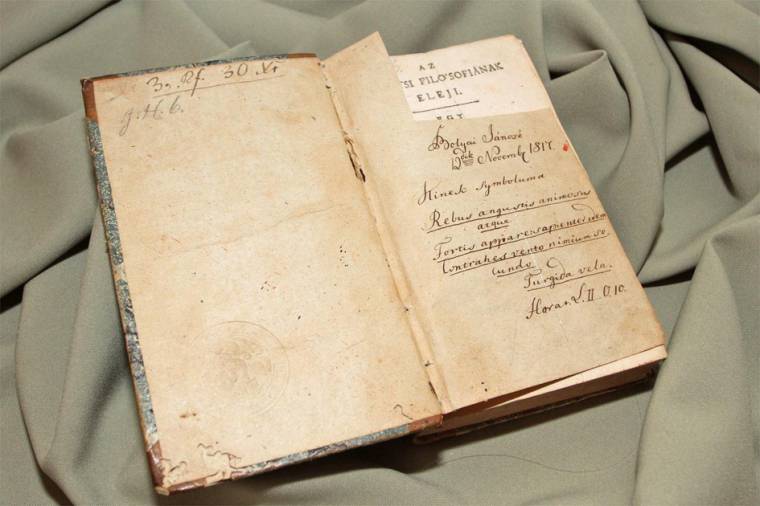 3. Rf. 30 XI
g. H. b.
AZ
SI FILO'SOFIÁNAK
ELEJI.
EGY
Bolyai Jánosé
12dik Novemb 1817
Kinek Symboluma
Rebus angustis animosus
atque
Fortis appare: sapienter idem
Contrahes vento nimium se
cundo
Turgida vela.
Horat. L. II. O. 10.